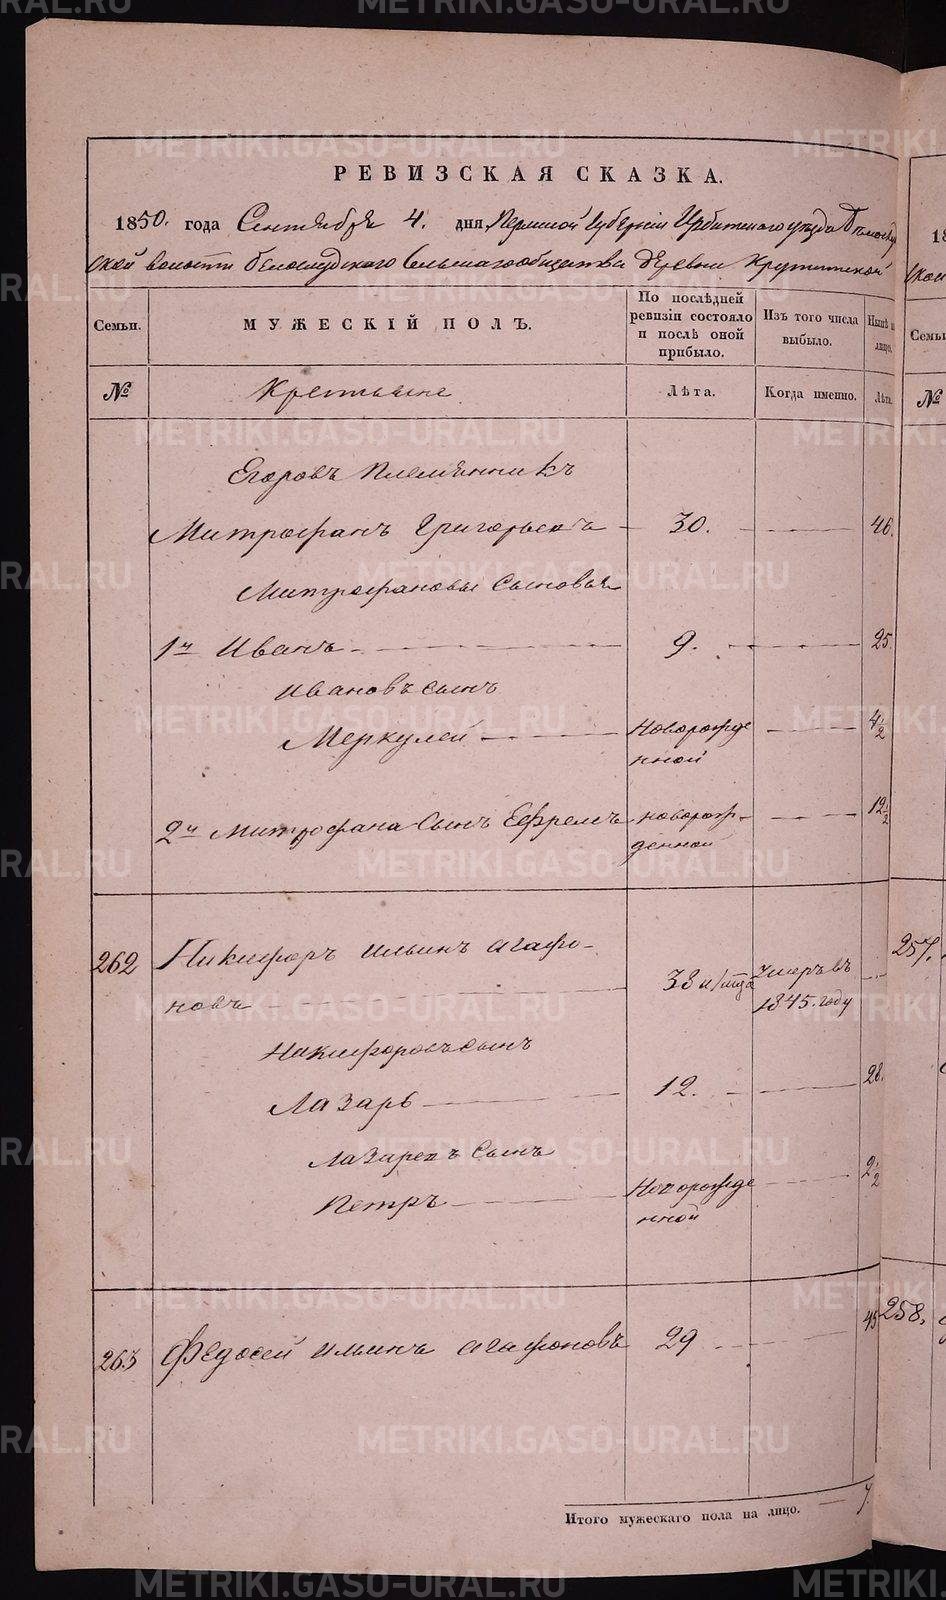 РЕВИЗСКАЯ СКАЗКА.
1850. года Сентября 4. дня, Пермской Губерніи Ирбитскаго уѣзда Бѣлослуд
ской волости Белослудскаго Сельскаго общества деревни Крутитской
Семьи.
МУЖЕСКІЙ ПОЛЪ.
По послѣдней ревизіи состояло и послѣ оной прибыло.
Изъ того числа выбыло.
Нынѣ на лицо.
№
Крестьяне
Лѣта.
Когда именно.
Лѣта.
Егоровъ племянникъ
Митрофанъ Григорьевъ 30. 46.
Митрофановы Сыновья
1й Иванъ 9. 25
Ивановъ сынъ
Меркулей Новорожде 4 1/2
нной
2й Митрофана Сынъ Ефремъ новорож- 12 1/2
денной
262 Никифоръ Ильинъ Агафо-
новъ 38 умеръ въ
1845. году
Никифоровъ сынъ
Лазарь 12. 28.
Лазаревъ Сынъ
Петръ Новорожде 2 1/2
нной
263 Федосей Ильинъ Агафоновъ 29 45
Итого мужескаго пола на лицо. 7.
18
Семьи
№
257.
258.
METRIKI.GASO-URAL.RU